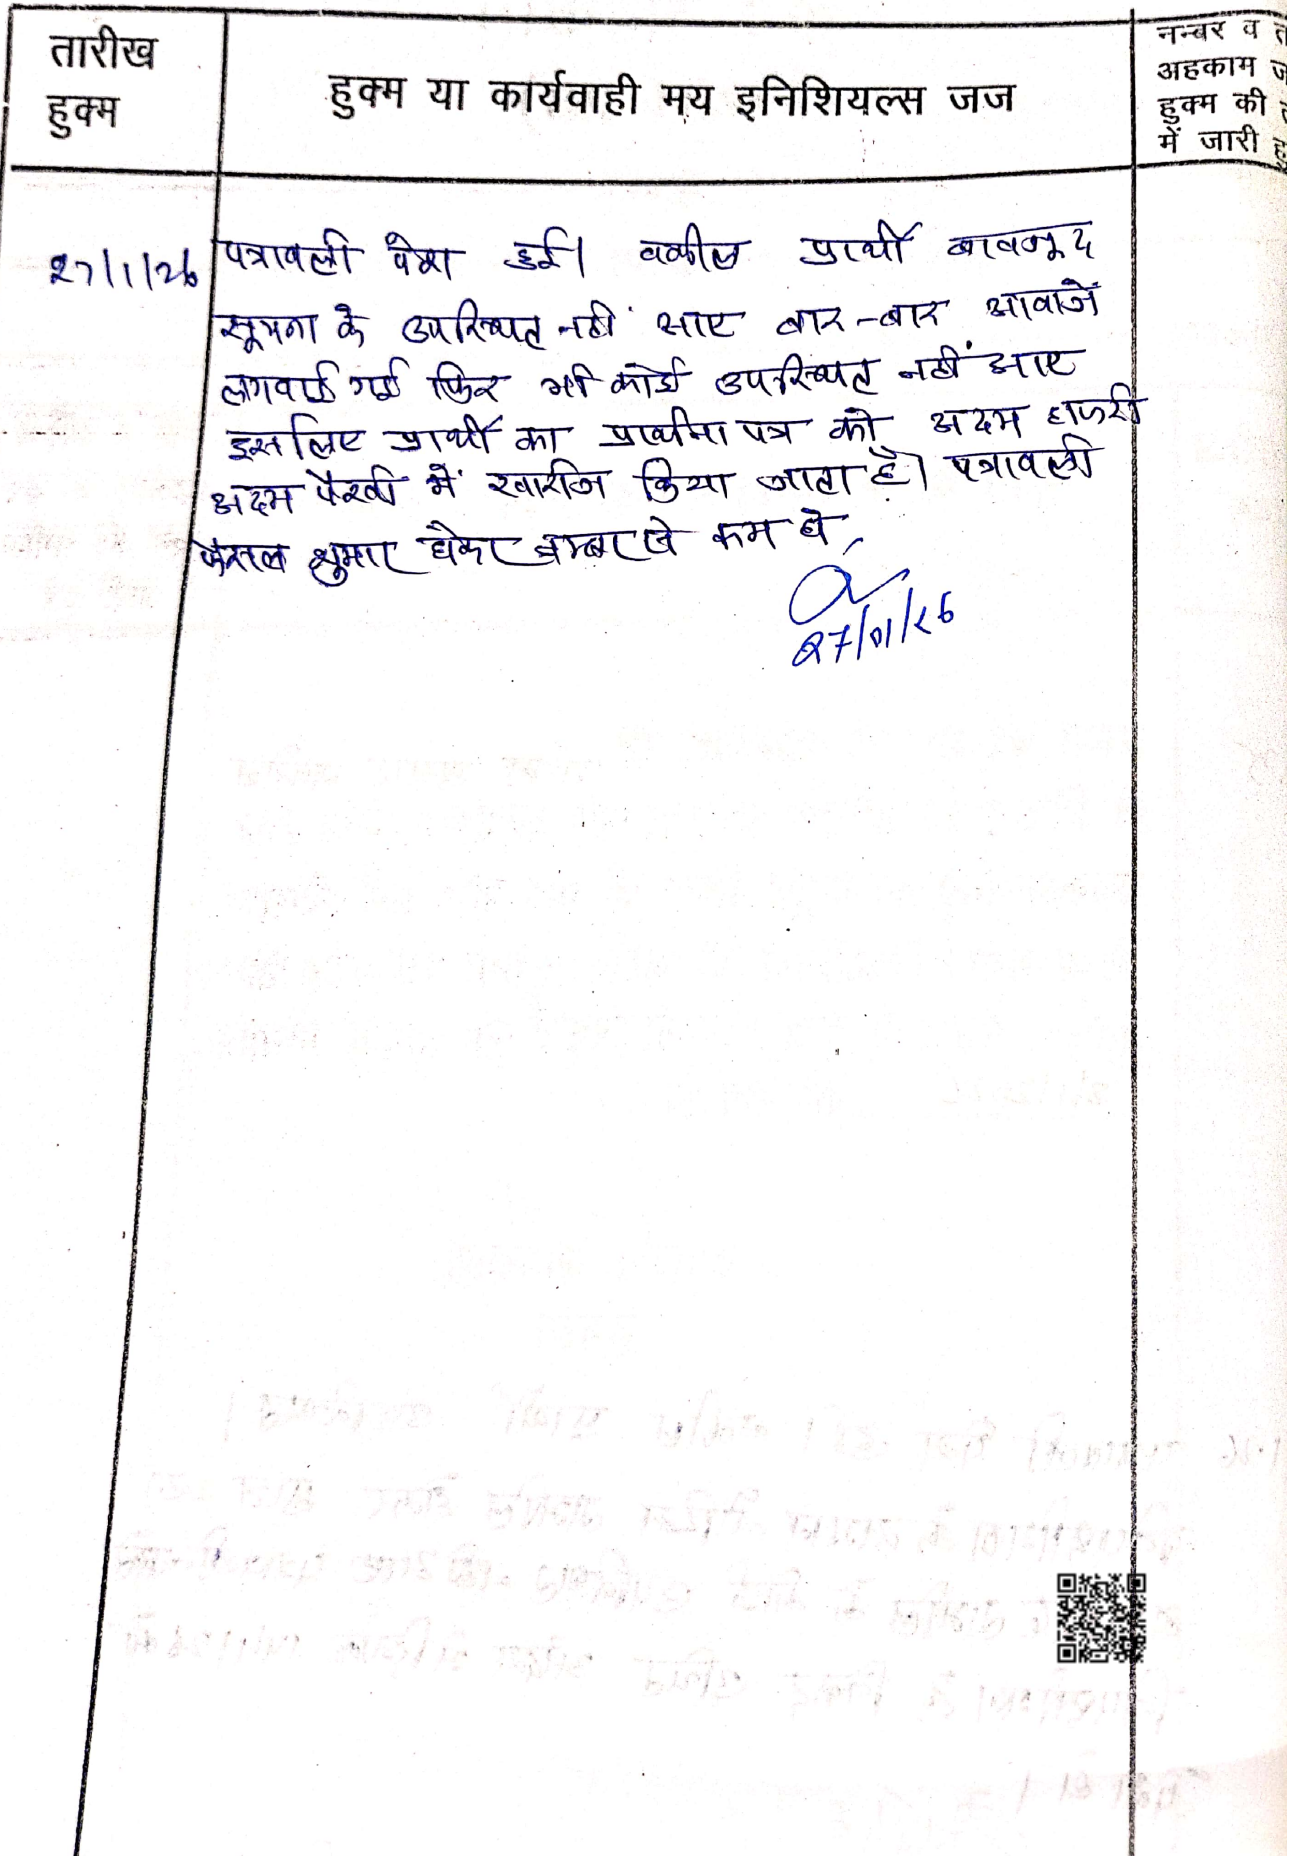 तारीख
हुक्म
हुक्म या कार्यवाही मय इनिशियल्स जज
नम्बर व त
अहकाम ज
हुक्म की त
में जारी हु
27/1/26
पत्रावली पेश हुई। वकील प्रार्थी बावजूद
सूचना के उपस्थित नहीं आए बार-बार आवाजें
लगवाई गई फिर भी कोई उपस्थित नहीं आए
इसलिए प्रार्थी का प्रार्थना पत्र को अदम हाजरी
अदम पैरवी में खारीज किया जाता है। पत्रावली
फैसल शुमार होकर नम्बर से कम हो
27/01/26